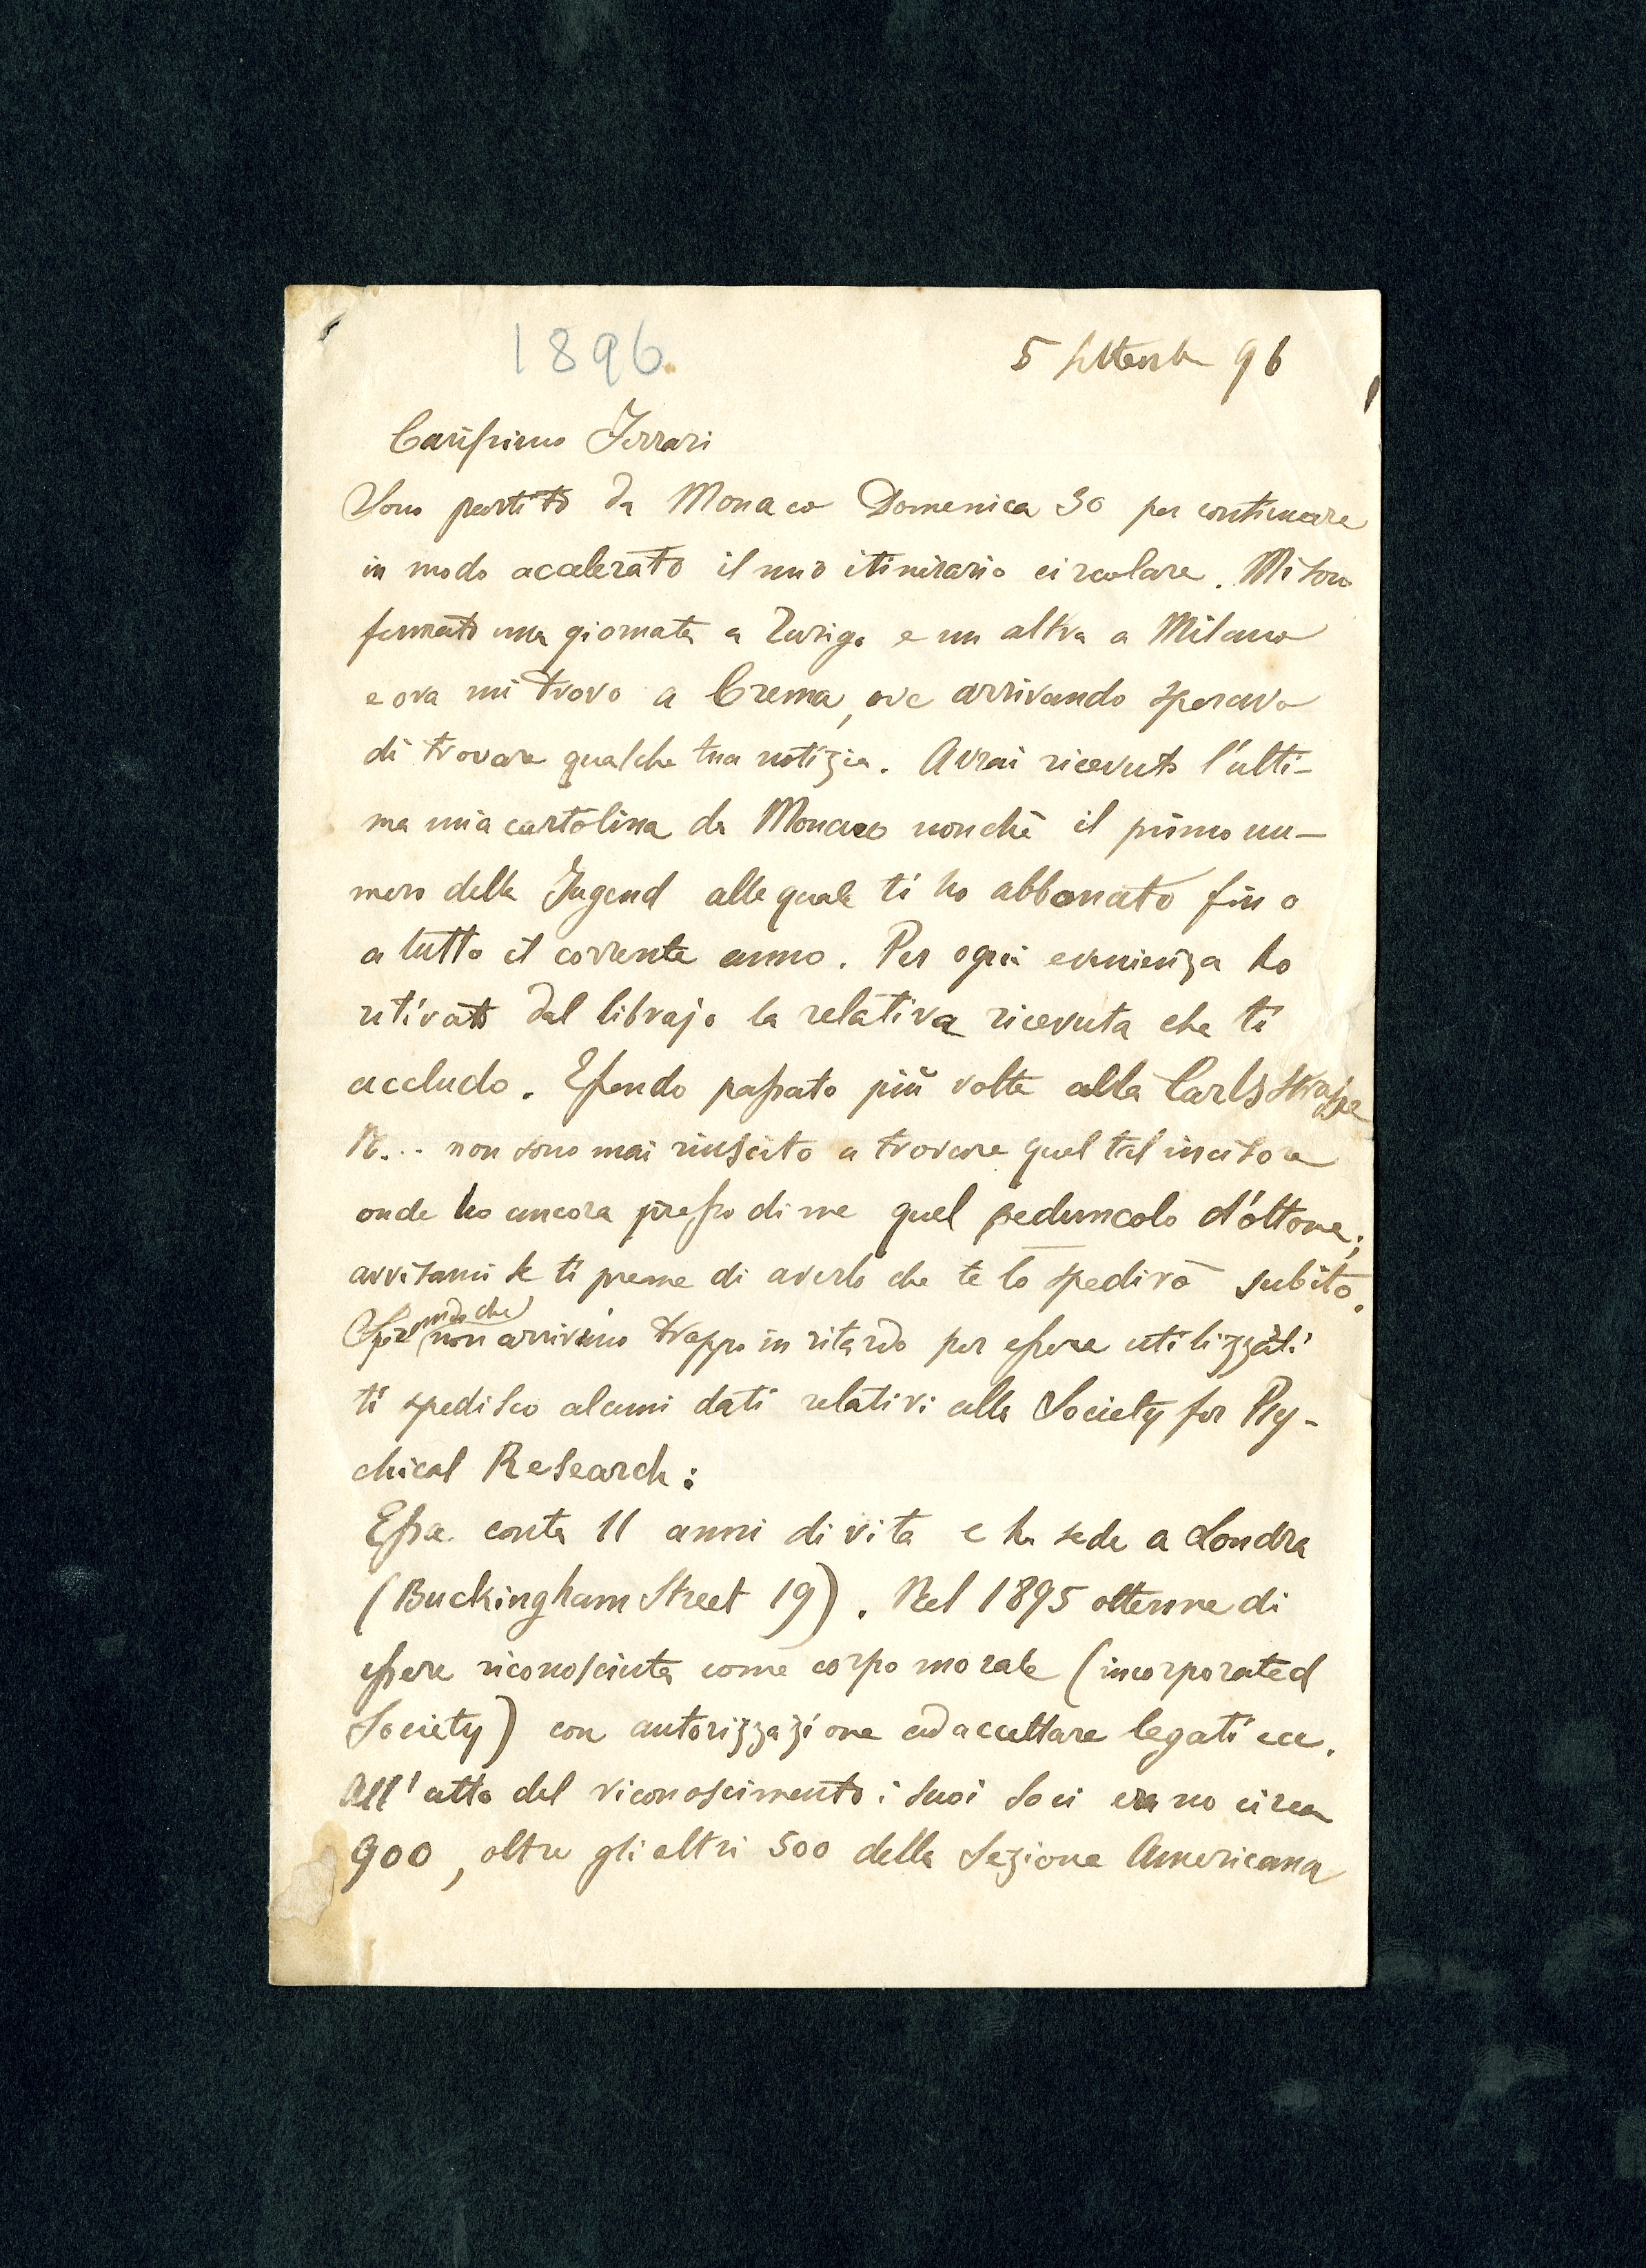 1896.
5 Settembre 96
Carissimo Ferrari
Sono partito da Monaco Domenica 30 per continuare
in modo accelerato il mio itinerario circolare. Mi sono
fermato una giornata a Zurigo e un altra a Milano
e ora mi trovo a Crema, ove arrivando speravo
di trovare qualche tua notizia. Avrai ricevuto l'ulti-
ma mia cartolina da Monaco nonchè il primo nu-
mero della Jugend alla quale ti ho abbonato fino
a tutto il corrente anno. Per ogni evenienza ho
ritirato dal librajo la relativa ricevuta che ti
accludo. Essendo passato più volte alla Carlsstrasse
N... non sono mai riuscito a trovare quel tal incisore
onde ho ancora presso di me quel peduncolo d'ottone;
avvisami se ti preme di averlo che te lo spedirò subito.
Sperando che non arrivino troppo in ritardo per essere utilizzati
ti spedisco alcuni dati relativi alla Society for Psy-
chical Research:
Essa conta 11 anni di vita e ha sede a Londra
(Buckingham Street 19). Nel 1895 ottenne di
essere riconosciuta come corpo morale (incorporated
Society) con autorizzazione ad accettare legati ecc.
All'atto del riconoscimento i suoi soci erano circa
900, oltre gli altri 500 della Sezione Americana